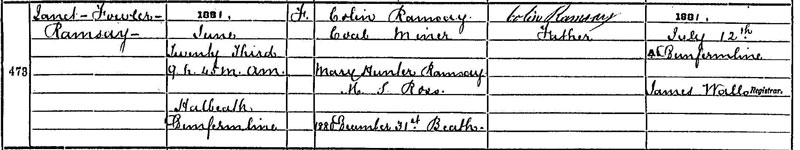 473
Janet Fowler
Ramsay
1881,
June
Twenty Third
9 h. 45 m. Am.
Halbeath
Dunfermline
F.
Colin Ramsay
Coal Miner
Mary Hunter Ramsay
M. S Ross.
1880 December 31st Beath.
Colin Ramsay
Father
1881.
July 12th
At Dunfermline
James Wallo
Registrar.